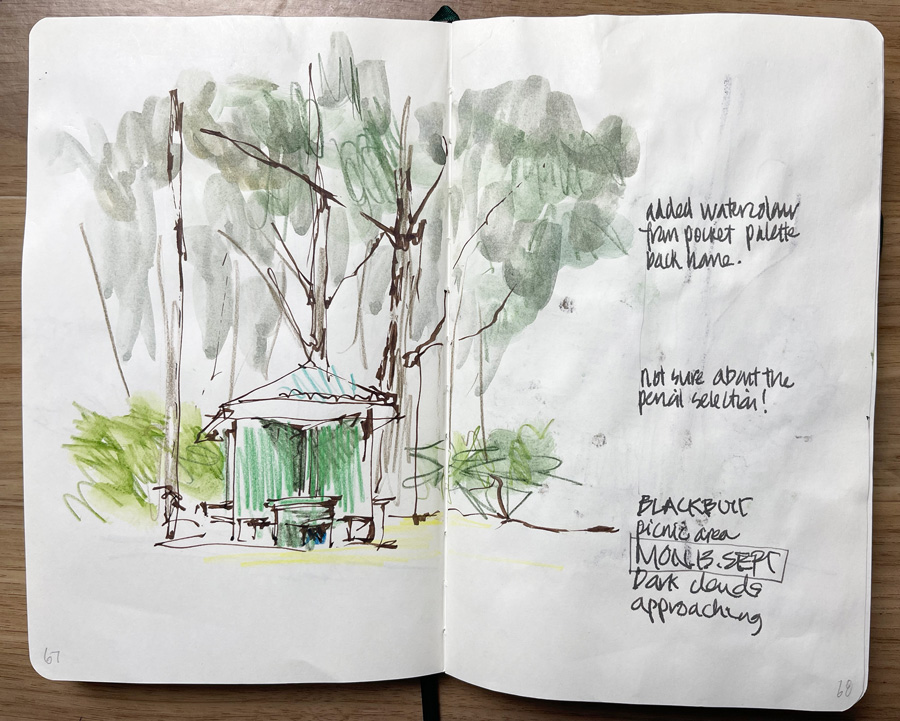 added watercolour
from pocket palette
back home.
not sure about the
pencil selection!
BLACKBUTT
picnic area
MON.13.SEPT
Dark clouds
approaching
67
68